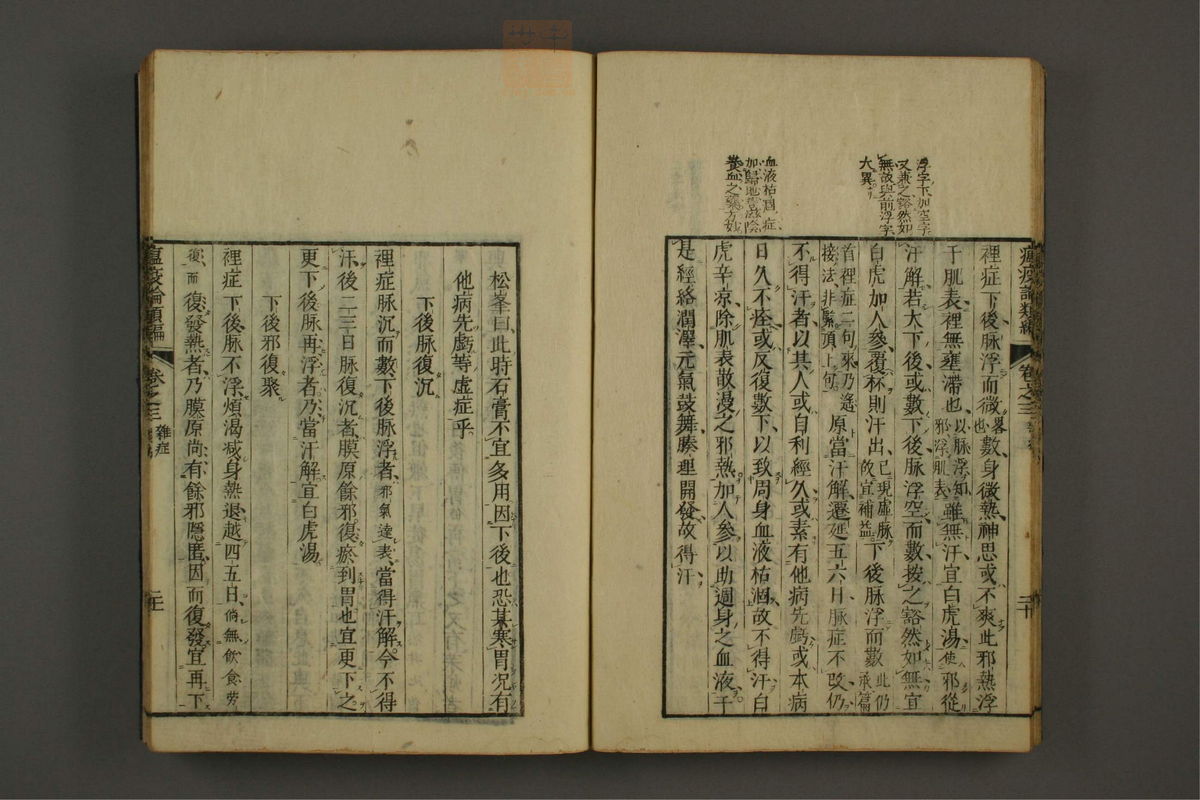 浮字下加空字
又兼之豁然如
無故與前浮字
大異
血液枯涸症
加歸地當滋陰
養血之藥方妙
瘟疫論類編 卷之三
裡症下後脈浮而微畧數身微熱神思或不爽此邪熱浮
于肌表裡無壅滯也以脈浮知邪浮肌表雖無汗宜白虎湯使邪從
汗解若大下後或數下後脈浮空而數按之豁然如無宜
白虎加人參覆杯則汗出已現虛脈故宜補益下後脈浮而數此仍承篇
首裡症二句來乃遙接法非緊頂上句原當汗解遷延五六日脈症不改仍
不得汗者以其人或自利經久或素有他病先虧或本病
日久不痊或反復數下以致周身血液枯涸故不得汗白
虎辛凉除肌表散漫之邪熱加人參以助週身之血液于
是經絡潤澤元氣鼓舞腠理開發故得汗
松峯曰此時石膏不宜多用因下後也恐其寒胃況有
他病先虧等虛症乎
下後脈復沉
裡症脈沉而數下後脈浮者邪氣達表當得汗解今不得
汗後二三日脈復沉者膜原餘邪復瘀到胃也宜更下之
更下後脈再浮者乃當汗解宜白虎湯
下後邪復聚
裡症下後脈不浮煩渴減身熱退越四五日倘無飲食勞
復而復發熱者乃膜原尚有餘邪隱匿因而復發宜再下
瘟疫論類編 卷之三 雜症